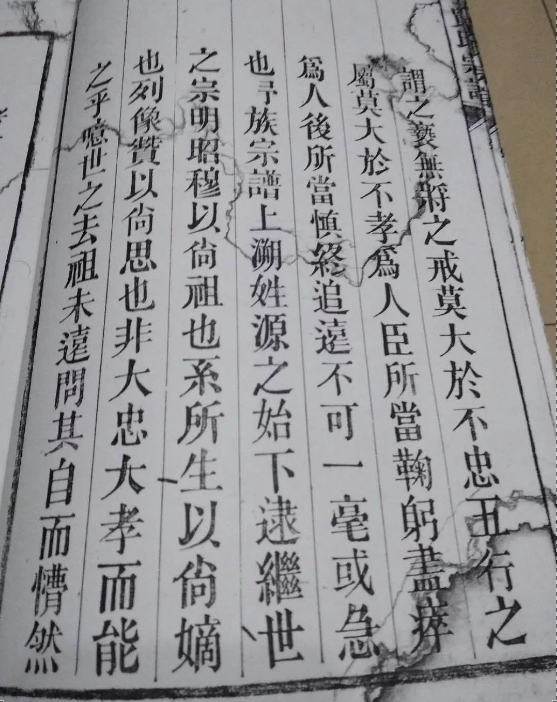 謂之褻無將之戒莫大於不忠五行之
屬莫大於不孝為人臣所當鞠躬盡瘁
為人後所當慎終追遠不可一毫或急
也予族宗譜上溯姓源之始下逮繼世
之宗明昭穆以尚祖也系所生以尚嫡
也列像贊以尚思也非大忠大孝而能
之乎噫世之去祖未遠問其自而懵然